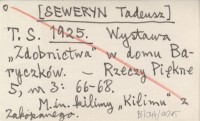 [SEWERYN Tadeusz]
T. S. 1925. Wystawa
„Zdobnictwa" w domu Ba-
ryczków. — Rzeczy Piękne
5, nr 3: 66-68.
M.in. kilimy „Kilimu" z
Zakopanego.